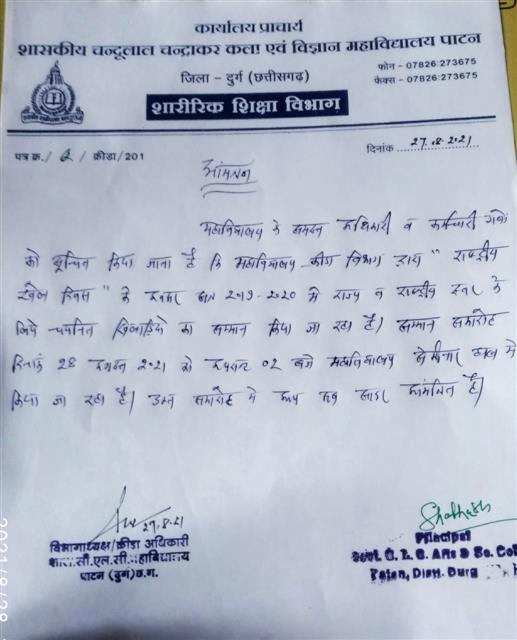 कार्यालय प्राचार्य
शासकीय चन्दूलाल चन्द्राकर कला एवं विज्ञान महाविद्यालय पाटन
जिला - दुर्ग (छत्तीसगढ़)
फोन - 07826:273675
फेक्स - 07826:273675
शारीरिक शिक्षा विभाग
पत्र क्र./ /क्रीडा/201
दिनांक 27.08.2021
आमंत्रण
महाविद्यालय के समस्त अधिकारी व कर्मचारी गणों
को सूचित किया जाता है कि महाविद्यालय क्रीडा विभाग द्वारा "राष्ट्रीय
खेल दिवस" के अवसर सत्र 2019-2020 में राज्य व राष्ट्रीय स्तर के
लिये चयनित खिलाडियो का सम्मान किया जा रहा है। सम्मान समारोह
दिनांक 28 अगस्त 2021 को दोपहर 02 बजे महाविद्यालय सेमीनार हाल में
किया जा रहा है। उक्त समारोह में आप सब सादर आमंत्रित है।
27.8.21
विभागाध्यक्ष/क्रीडा अधिकारी
शास.सी.एल.सी.महाविद्यालय
पाटन (दुर्ग) छ.ग.
Principal
Govt. C. L. C. Arts & Sc. Col
Patan, Distt. Durg